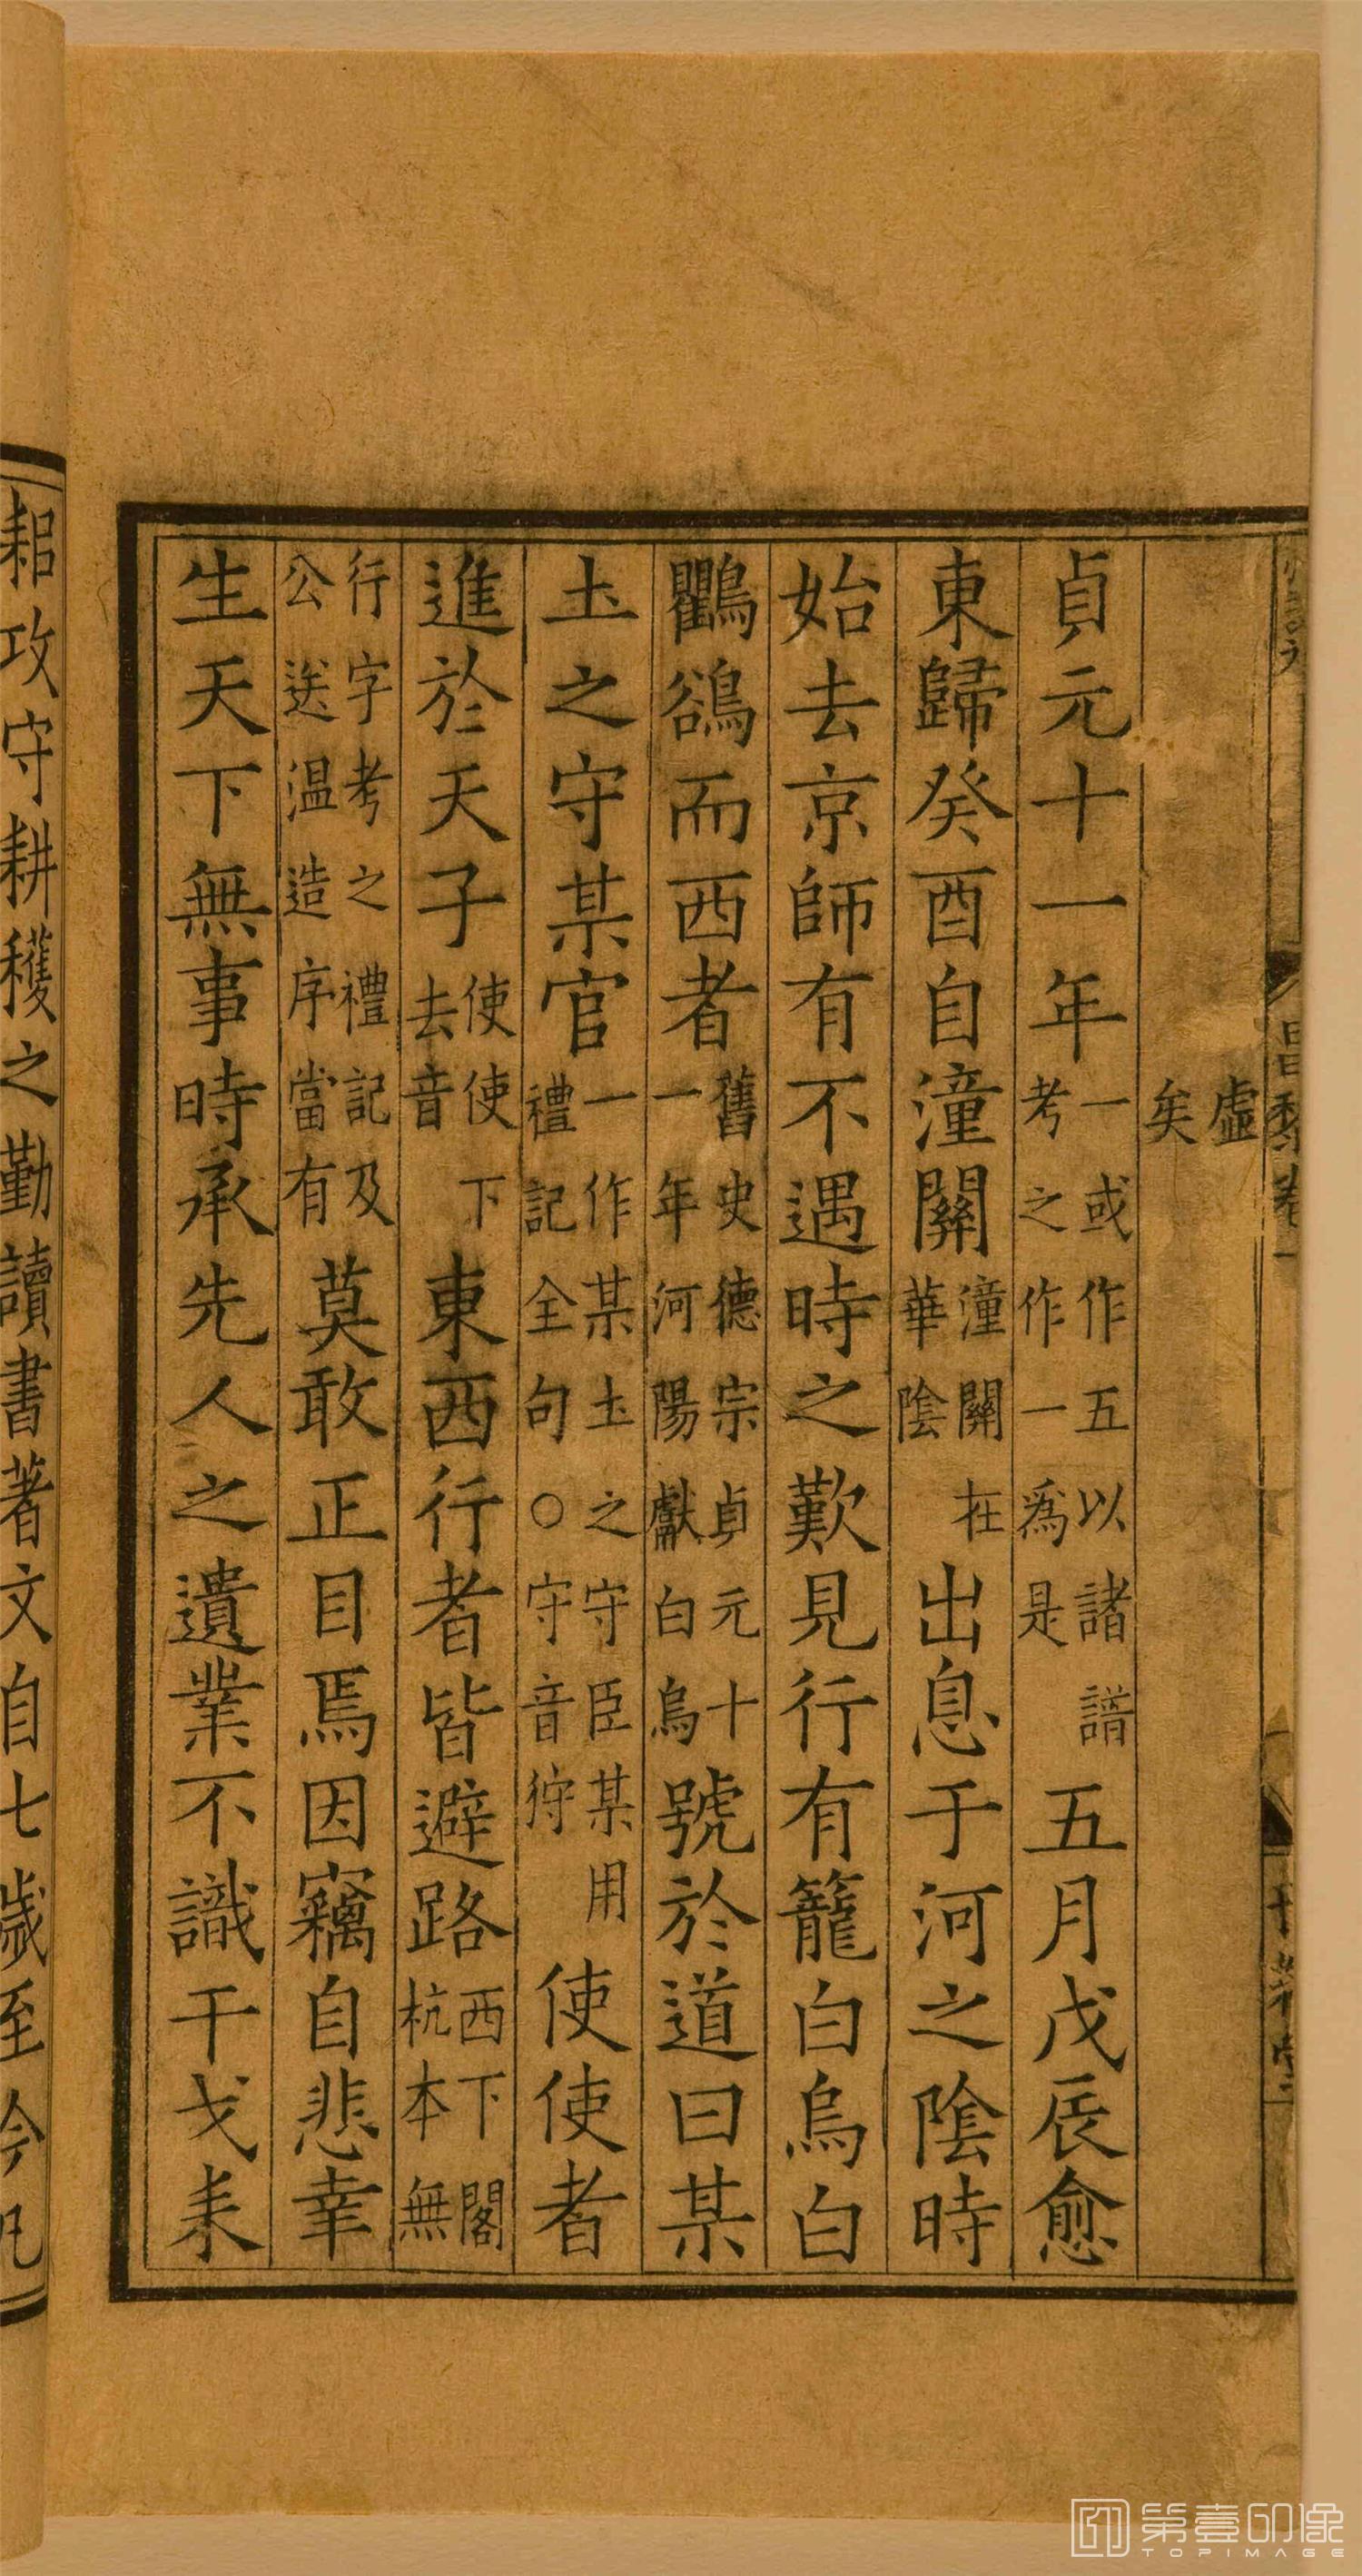 虛
矣
貞元十一年一或作五以諸譜考之作一爲是五月戊辰愈
東歸癸酉自潼關潼關在華陰出息于河之陰時
始去京師有不遇時之歎見行有籠白烏白
鸜鵒而西者舊史德宗貞元十一年河陽獻白烏號於道曰某
土之守某官一作某土之守守臣某用禮記全句○守音狩使使者
進於天子使使下去音東西行者皆避路西下閣杭本無
行字考之禮記及公送溫造序當有莫敢正目焉因竊自悲幸
生天下無事時承先人之遺業不識干戈耒
耜攻守耕穫之勤讀書著文自七歲至今凡
昌黎卷一
第壹印像
TOPIMAGE